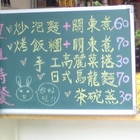 炒泡麵+關東煮60
烤飯糰+關東煮70
手工高麗菜捲30
日式烏龍麵70
茶碗蒸30